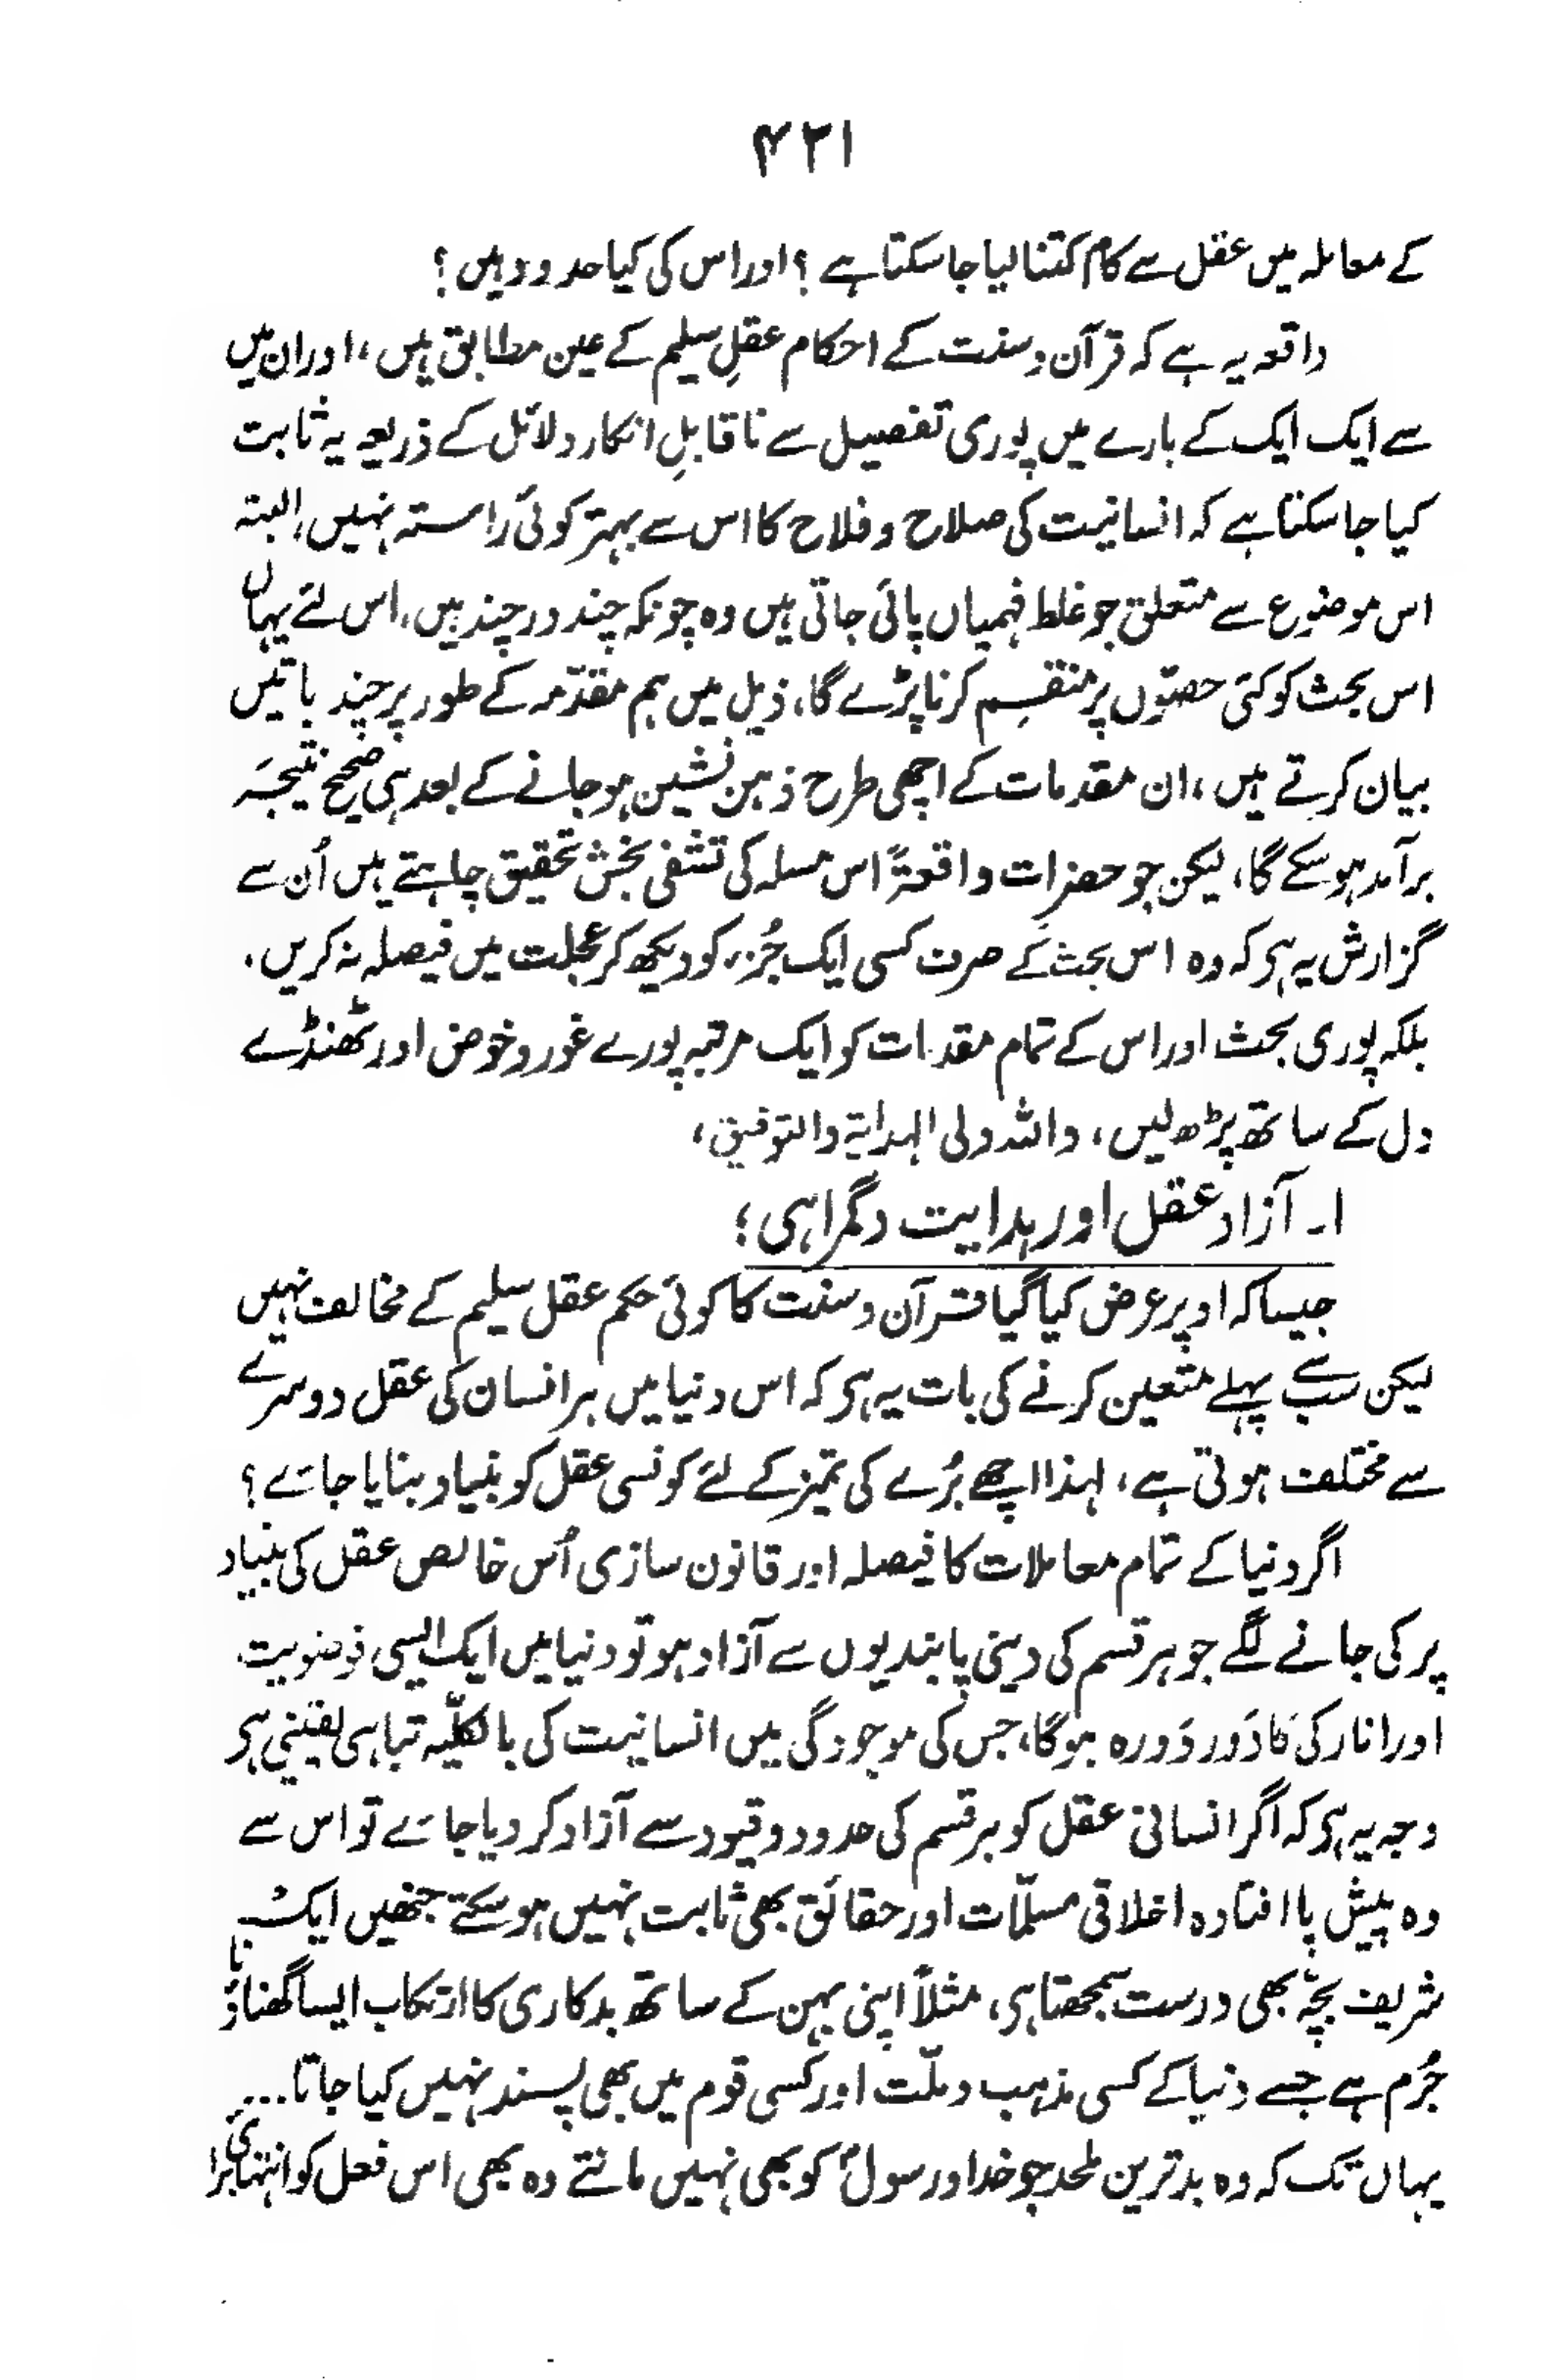 ۴۲۱
کے معاملہ میں عقل سے کام کتنا لیا جا سکتا ہے ؟ اور اس کی کیا حدود ہیں ؟
واقعہ یہ ہے کہ قرآن و سنت کے احکام عقلِ سلیم کے عین مطابق ہیں، اور ان میں
سے ایک ایک کے بارے میں پوری تفصیل سے ناقابلِ انکار دلائل کے ذریعہ یہ ثابت
کیا جا سکتا ہے کہ انسانیت کی صلاح و فلاح کا اس سے بہتر کوئی راستہ نہیں، البتہ
اس موضوع سے متعلق جو غلط فہمیاں پائی جاتی ہیں وہ چونکہ چند در چند ہیں، اس لئے یہاں
اس بحث کو کئی حصّوں پر منقسم کرنا پڑے گا، ذیل میں ہم مقدّمہ کے طور پر چند باتیں
بیان کرتے ہیں، ان مقدمات کے اچھی طرح ذہن نشین ہو جانے کے بعد ہی صحیح نتیجہ
برآمد ہو سکے گا، لیکن جو حضرات واقعۃً اس مسلہ کی تشفی بخش تحقیق چاہتے ہیں اُن سے
گزارش یہ ہی کہ وہ اس بحث کے صرف کسی ایک جُزء کو دیکھ کر عجلت میں فیصلہ نہ کریں،
بلکہ پوری بحث اور اس کے تمام مقدمات کو ایک مرتبہ پورے غور و خوض اور ٹھنڈے
دل کے ساتھ پڑھ لیں، واللہ ولی الہدایۃ والتوفیق،
۱۔ آزاد عقل اور ہدایت و گمراہی؛
جیسا کہ اوپر عرض کیا گیا قرآن و سنت کا کوئی حکم عقل سلیم کے مخالف نہیں
لیکن سب سے پہلے متعین کرنے کی بات یہ ہی کہ اس دنیا میں ہر انسان کی عقل دوسرے
سے مختلف ہوتی ہے، لہٰذا اچھے بُرے کی تمیز کے لئے کونسی عقل کو بنیاد بنایا جائے ؟
اگر دنیا کے تمام معاملات کا فیصلہ اور قانون سازی اُس خالص عقل کی بنیاد
پر کی جانے لگے جو ہر قسم کی دینی پابندیوں سے آزاد ہو تو دنیا میں ایک ایسی فوضویت
اور انارکی کا دَور دَورہ ہوگا، جس کی موجودگی میں انسانیت کی بالکلّیہ تباہی یقینی ہی
وجہ یہ ہی کہ اگر انسانی عقل کو ہر قسم کی حدود و قیود سے آزاد کر دیا جائے تو اس سے
وہ پیش پا افتادہ اخلاقی مسلّمات اور حقائق بھی ثابت نہیں ہو سکتے جنھیں ایک
شریف بچّہ بھی درست سمجھتا ہی، مثلاً اپنی بہن کے ساتھ بدکاری کا ارتکاب ایسا گھناؤنا
جُرم ہے جسے دنیا کے کسی مذہب و ملّت اور کسی قوم میں بھی پسند نہیں کیا جاتا...
یہاں تک کہ وہ بدترین ملحد جو خدا اور رسولؐ کو بھی نہیں مانتے وہ بھی اس فعل کو انتہائی بُرا